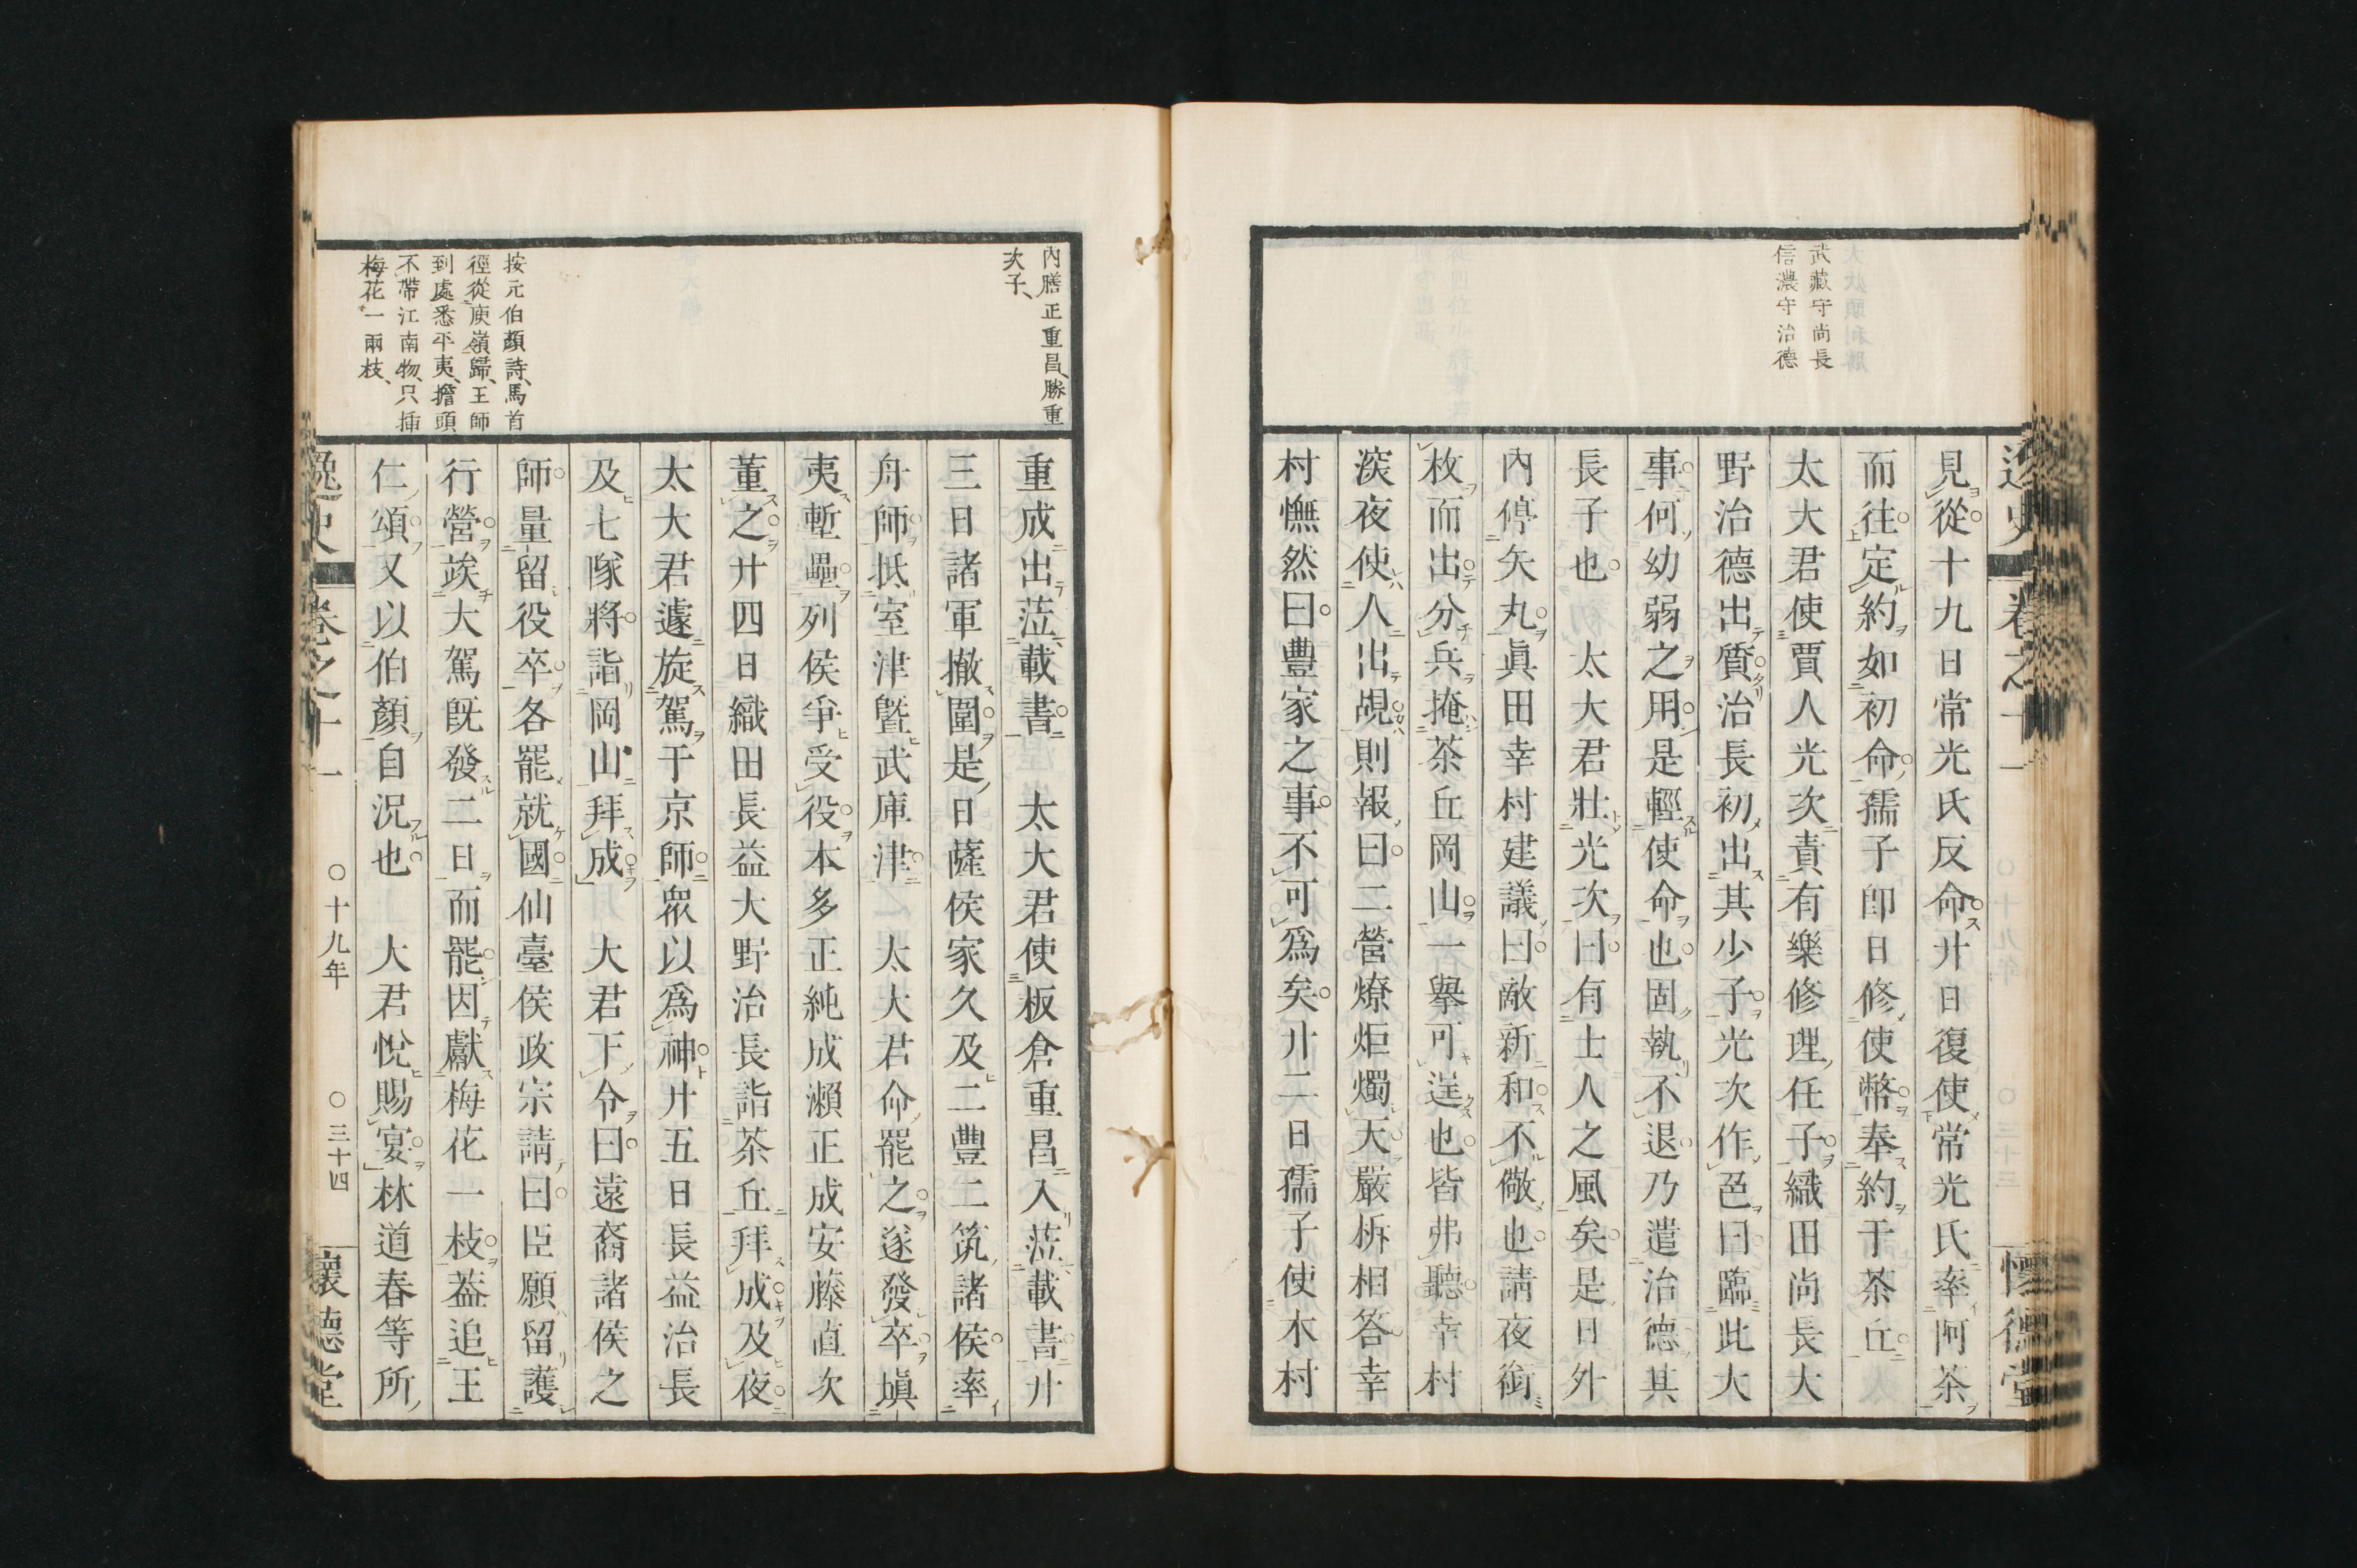 武藏守尚長
信濃守治德
見從十九日常光氏反命廾日復使常光氏率阿茶
而往定約如初命孺子卽日修使幣奉約于茶丘
太大君使賈人光次責有樂修理任子織田尚長大
野治德出質治長初出其少子光次作色曰臨此大
事何幼弱之用是輕使命也固執不退乃遣治德其
長子也 太大君壯光次曰有士人之風矣是日外
內停矢丸眞田幸村建議曰敵新和不儆也請夜銜
枚而出分兵掩茶丘岡山一擧可逞也皆弗聽幸村
深夜使人出覘則報曰二營燎炬燭天嚴柝相答幸
村憮然曰豐家之事不可爲矣廾二日孺子使木村
內膳正重昌勝重
次子
按元伯顏詩馬首
徑從庾嶺歸王師
到處悉平夷擔頭
不帶江南物只插
梅花一兩枝
重成出蒞載書 太大君使板倉重昌入蒞載書廾
三日諸軍撤圍是日薩侯家久及二豐二筑諸侯率
舟師抵室津曁武庫津 太大君命罷之遂發卒塡
夷塹壘列侯爭受役本多正純成瀨正成安藤直次
董之廾四日織田長益大野治長詣茶丘拜成及夜
太大君遽旋駕于京師衆以爲神廾五日長益治長
及七隊將詣岡山拜成 大君下令曰遠裔諸侯之
師量留役卒各罷就國仙臺侯政宗請曰臣願留護
行營竢大駕旣發二日而罷因獻梅花一枝葢追王
仁頌又以伯顏自況也 大君悅賜宴林道春等所
逸史 卷之十一 ○十九年 ○三十四 懷德堂